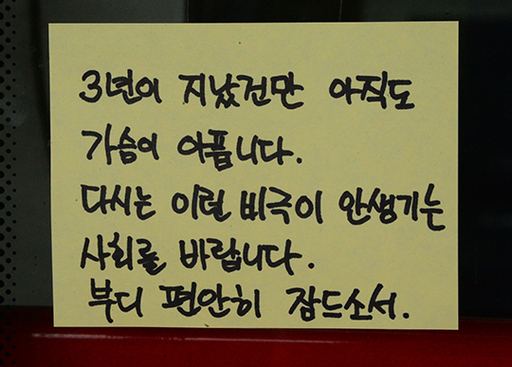 3년이 지났건만 아직도
가슴이 아픕니다.
다시는 이런 비극이 안생기는
사회를 바랍니다.
부디 편안히 잠드소서.